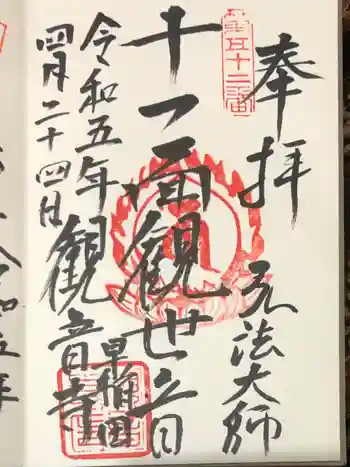 奉拝
弘法大師
十一面観世音
早稲田
観音寺
令和五年
四月二十四日